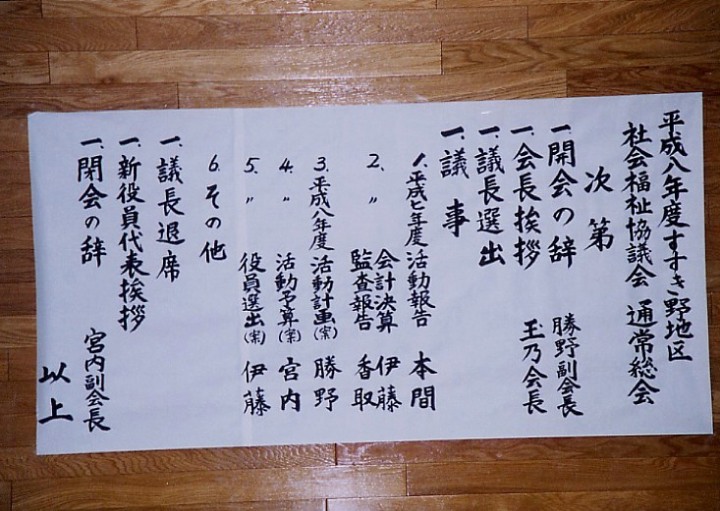 平成八年度すすき野地区
社会福祉協議会 通常総会
次第
一、開会の辞 勝野副会長
一、会長挨拶 玉乃会長
一、議長選出
一、議事
1、平成七年度 活動報告 本間
2、〃 会計決算 伊藤
監査報告 香取
3、平成八年度 活動計画(案) 勝野
4、〃 活動予算(案) 宮内
5、〃 役員選出(案) 伊藤
6、その他
一、議長退席
一、新役員代表挨拶
一、閉会の辞 宮内副会長
以上